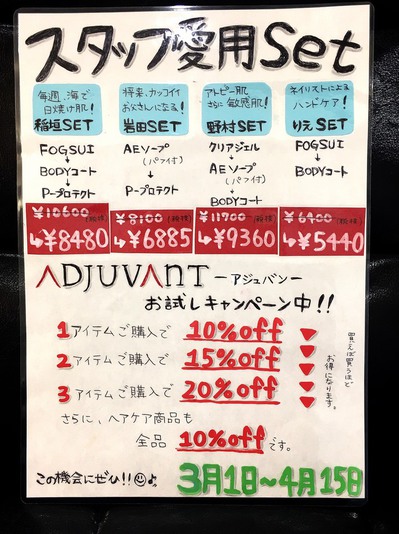 スタッフ愛用Set
毎週、海で
日焼け肌!
稲垣SET
FOGSUI
BODYコート
P-プロテクト
¥10600(税抜)
¥8480
将来、カッコイイ
お父さんになる!
岩田SET
AEソープ
(パフ付)
P-プロテクト
¥8100(税抜)
¥6885
アトピー肌
さらに敏感肌!
野村SET
クリアジェル
AEソープ
(パフ付)
BODYコート
¥11700(税抜)
¥9360
ネイリストによる
ハンドケア!
りえSET
FOGSUI
BODYコート
¥6400(税抜)
¥5440
ADJUVANT ーアジュバンー
お試しキャンペーン中!!
1アイテムご購入で 10%off
2アイテムご購入で 15%off
3アイテムご購入で 20%off
買えば買うほど
お得になります。
さらに、ヘアケア商品も
全品 10%offです。
この機会にぜひ!!☺♪
3月1日～4月15日